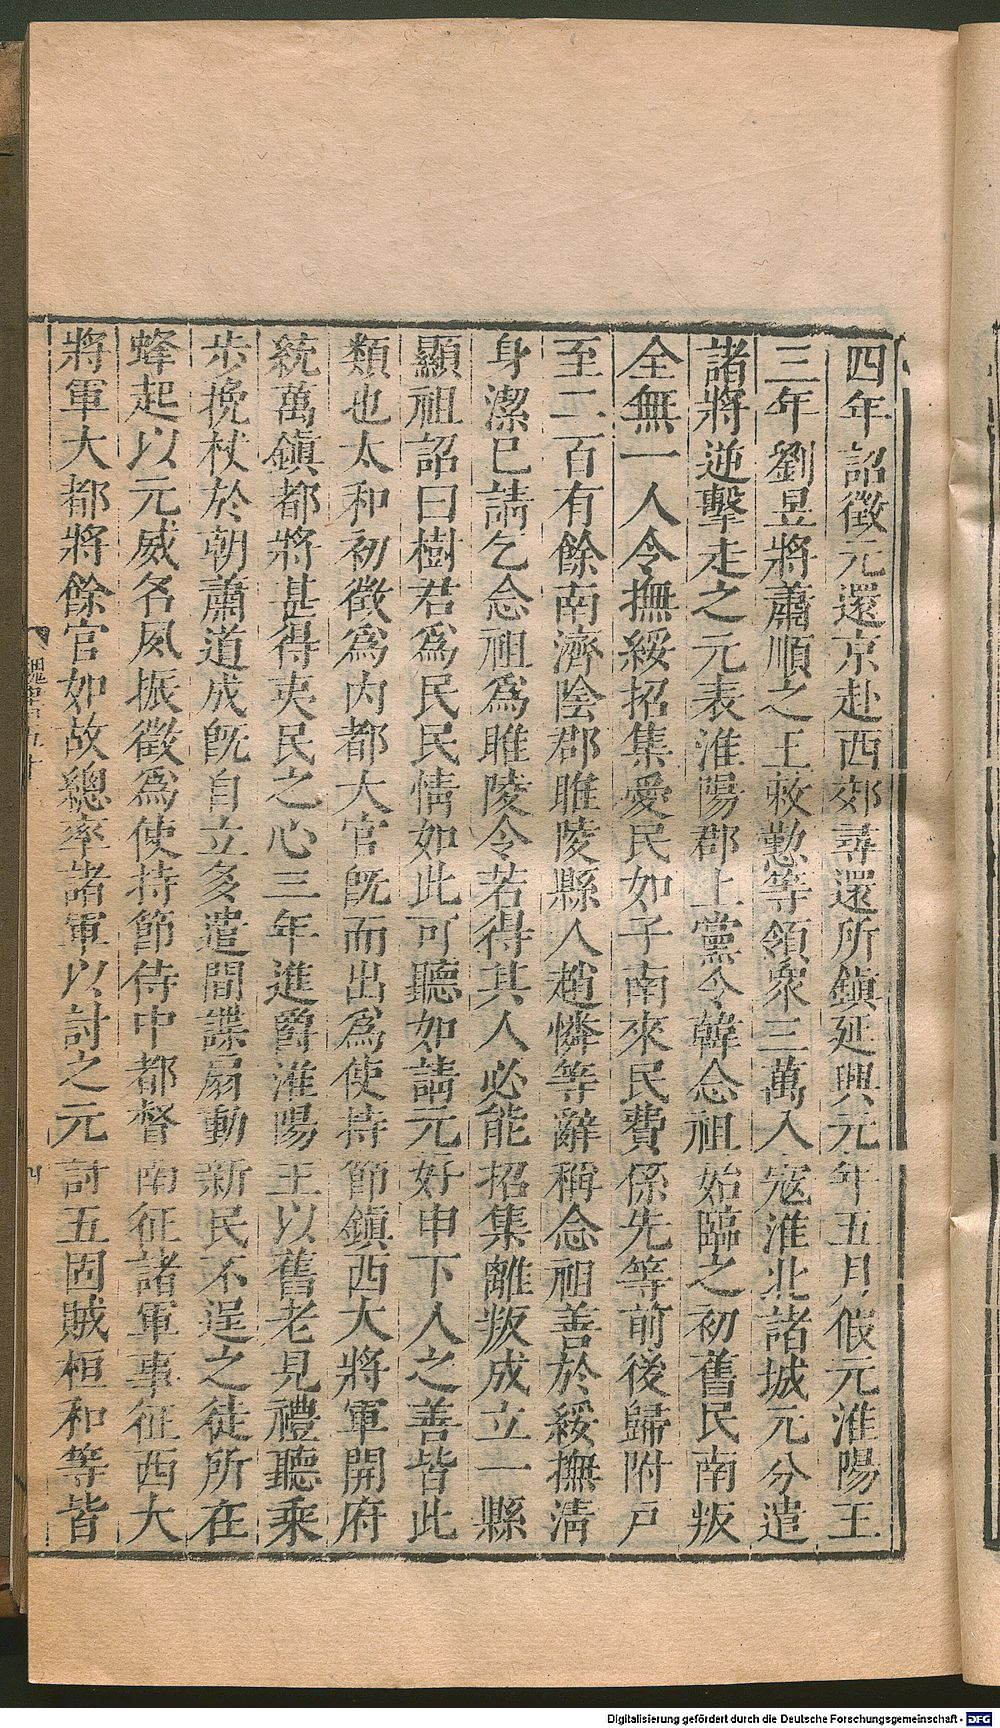 四年詔徵元還京赴西郊尋還所鎮延興元年五月假元淮陽王
三年劉昱將蕭順之王敕懃等領衆三萬入寇淮北諸城元分遣
諸將逆擊走之元表淮陽郡上黨令韓念祖始臨之初舊民南叛
全無一人令撫綏招集愛民如子南來民費係先等前後歸附戸
至二百有餘南濟陰郡睢陵縣人趙憐等辭稱念祖善於綏撫淸
身潔已請乞念祖爲睢陵令若得其人必能招集離叛成立一縣
顯祖詔曰樹君爲民民情如此可聽如請元好申下人之善皆此
類也太和初徵爲内都大官旣而出爲使持節鎮西大將軍開府
統萬鎮都將甚得夷民之心三年進爵淮陽王以舊老見禮聽乘
步挽杖於朝蕭道成旣自立多遣間諜扇動新民不逞之徒所在
蜂起以元威名夙振徵爲使持節侍中都督南征諸軍事征西大
將軍大都將餘官如故總率諸軍以討之元討五固賊桓和等皆
魏書五十
Digitalisierung gefördert durch die Deutsche Forschungsgemeinschaft - DFG